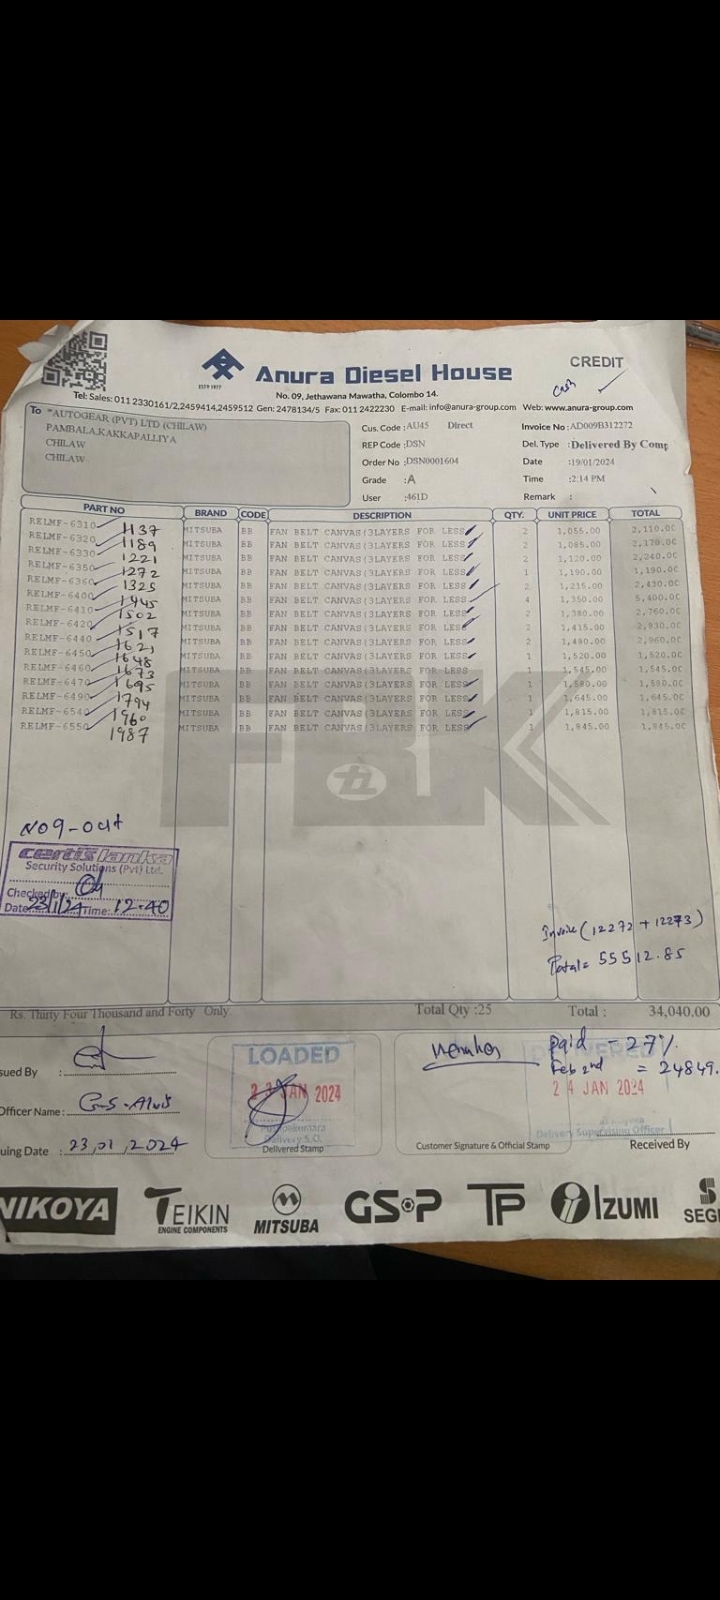 CREDIT
Anura Diesel House
cash
ESTD 1977
No. 09, Jethawana Mawatha, Colombo 14.
Tel: Sales: 011 2330161/2,2459414,2459512 Gen: 2478134/5 Fax: 011 2422230 E-mail: info@anura-group.com Web: www.anura-group.com
To "AUTOGEAR (PVT) LTD (CHILAW)
PAMBALA,KAKKAPALLIYA
CHILAW
CHILAW
Cus. Code : AU45 Direct
REP Code : DSN
Order No : DSN0001604
Grade : A
User : 461D
Invoice No : AD009B312272
Del. Type : Delivered By Comp
Date : 19/01/2024
Time : 2:14 PM
Remark :
PART NO BRAND CODE DESCRIPTION QTY. UNIT PRICE TOTAL
RELMF-6310 1137 MITSUBA BB FAN BELT CANVAS(3LAYERS FOR LESS 2 1,055.00 2,110.00
RELMF-6320 1189 MITSUBA BB FAN BELT CANVAS(3LAYERS FOR LESS 2 1,085.00 2,170.00
RELMF-6330 1221 MITSUBA BB FAN BELT CANVAS(3LAYERS FOR LESS 2 1,120.00 2,240.00
RELMF-6350 1272 MITSUBA BB FAN BELT CANVAS(3LAYERS FOR LESS 1 1,190.00 1,190.00
RELMF-6360 1325 MITSUBA BB FAN BELT CANVAS(3LAYERS FOR LESS 2 2,430.00
RELMF-6400 1445 MITSUBA BB FAN BELT CANVAS(3LAYERS FOR LESS 4 1,350.00 5,400.00
RELMF-6410 1502 MITSUBA BB FAN BELT CANVAS(3LAYERS FOR LESS 2 1,380.00 2,760.00
RELMF-6420 1517 MITSUBA BB FAN BELT CANVAS(3LAYERS FOR LESS 2 1,415.00 2,830.00
RELMF-6440 1621 MITSUBA BB FAN BELT CANVAS(3LAYERS FOR LESS 2 1,480.00 2,960.00
RELMF-6450 1648 MITSUBA BB FAN BELT CANVAS(3LAYERS FOR LESS 1 1,520.00 1,520.00
RELMF-6460 1673 MITSUBA BB FAN BELT CANVAS(3LAYERS FOR LESS 1 1,545.00 1,545.00
RELMF-6470 1695 MITSUBA BB FAN BELT CANVAS(3LAYERS FOR LESS 1 1,580.00 1,580.00
RELMF-6490 1794 MITSUBA BB FAN BELT CANVAS(3LAYERS FOR LESS 1 1,645.00 1,645.00
RELMF-6540 1960 MITSUBA BB FAN BELT CANVAS(3LAYERS FOR LESS 1 1,815.00 1,815.00
RELMF-6550 1987 MITSUBA BB FAN BELT CANVAS(3LAYERS FOR LESS 1 1,845.00 1,845.00
FBK
N09-out
certis lanka
Security Solutions (Pvt) Ltd.
Checked by:
Date: 23/1/24 Time: 12.40
Invoice (12272 + 12273)
Total = 55512.85
Rs. Thirty Four Thousand and Forty Only Total Qty :25 Total : 34,040.00
sued By :
Officer Name :
uing Date : 23,01,2024
LOADED
23 JAN 2024
Delivery S.O.
Delivered Stamp
Customer Signature & Official Stamp
DELIVERED
Paid - 27%
Feb 2nd = 24849.
24 JAN 2024
Delivery Supervision Officer
Received By
NIKOYA
TEIKIN
ENGINE COMPONENTS
MITSUBA
GSP
TP
IZUMI
SEGI